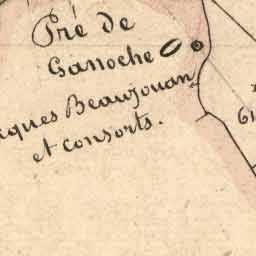 Pré de
Ganoche
cques Beaujouan
et consorts.
61